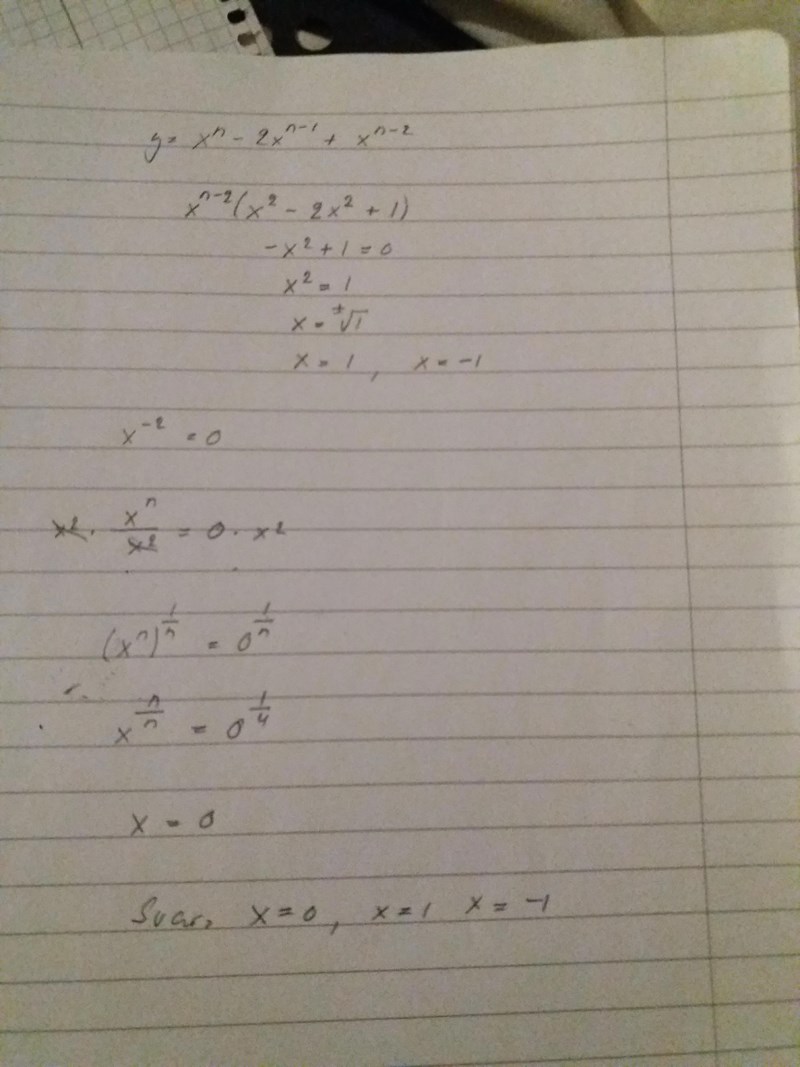 y = xⁿ - 2xⁿ⁻¹ + xⁿ⁻²
xⁿ⁻²(x² - 2x² + 1)
-x² + 1 = 0
x² = 1
x = ±√1
x = 1, x = -1
x⁻² = 0
x² · xⁿ/x² = 0 · x²
(xⁿ)^(1/n) = 0^(1/n)
x^(n/n) = 0^(1/4)
x = 0
Svar, x = 0, x = 1 x = -1